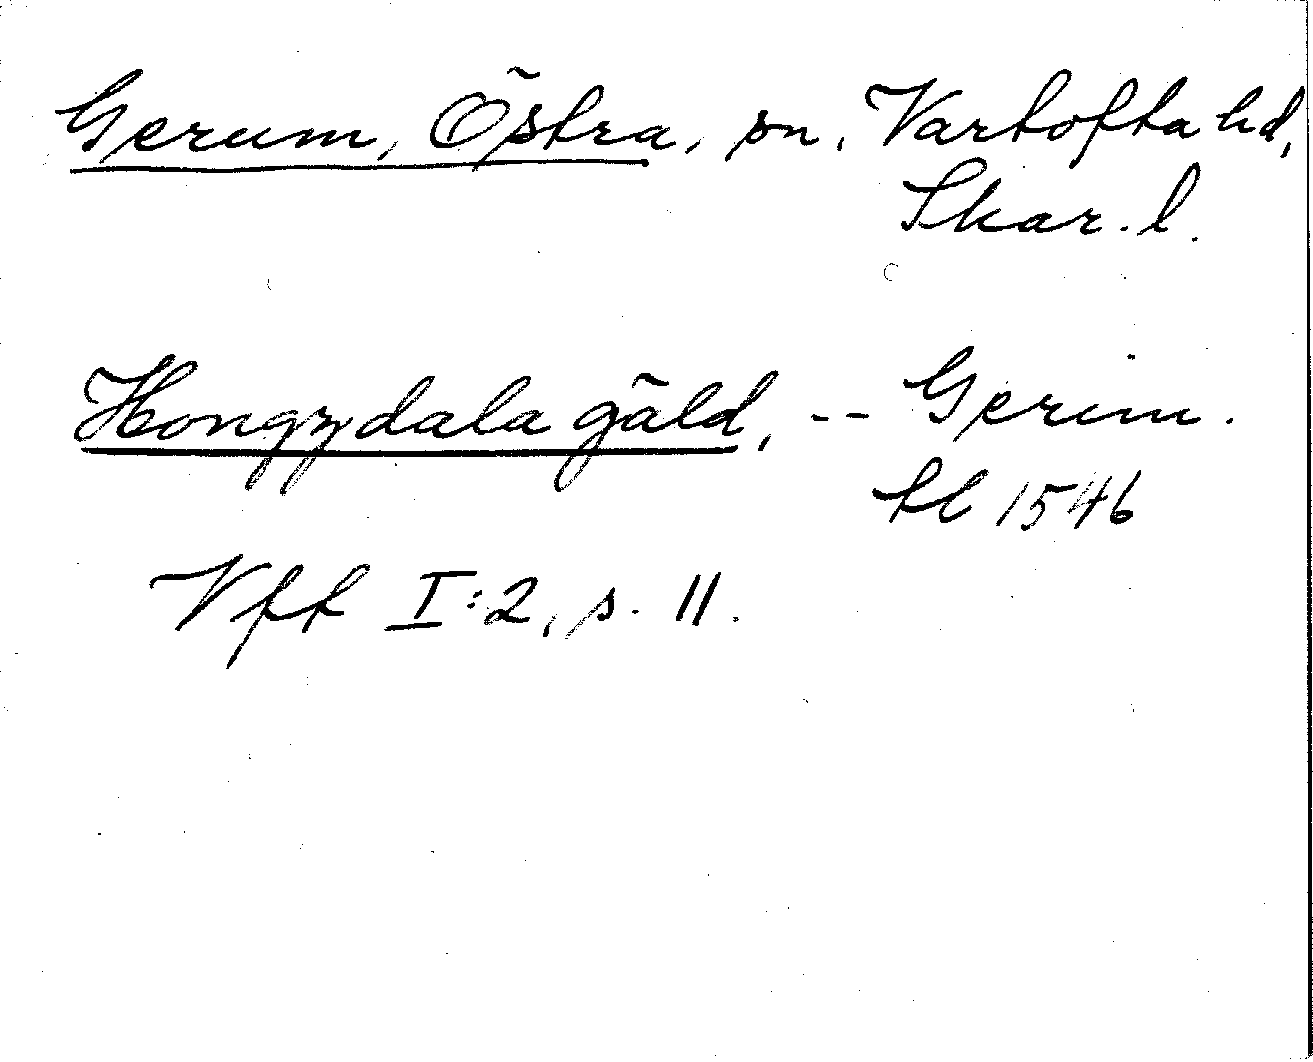 Gerum, Östra, sn, Vartofta hd,
Skar. l.
Hongzdala gäld, -- Gerim.
tl 1546
Vff I:2, s. 11.